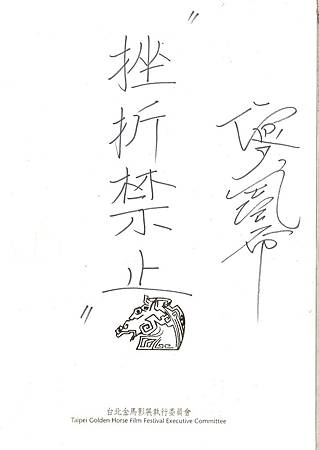 〃挫折禁止〃
台北金馬影展執行委員會
Taipei Golden Horse Film Festival Executive Committee